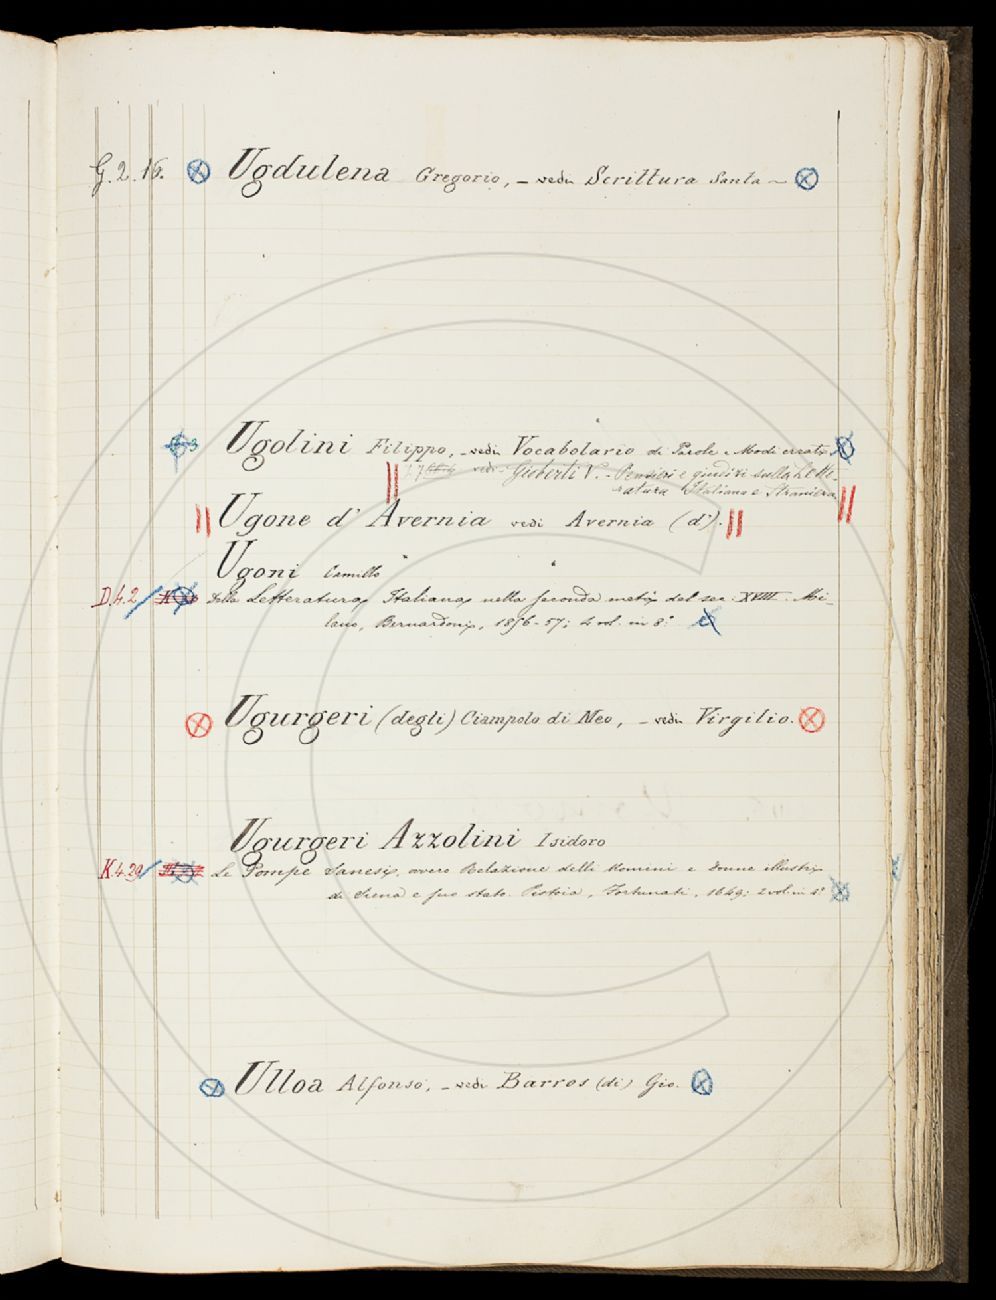 G. 2. 16. Ugdulena Gregorio, - vedi Scrittura Santa -
Ugolini Filippo, - vedi Vocabolario di Parole e Modi errati
vedi Gioberti V. - Pensieri e giudizi sulla Lette-
ratura Italiana e Straniera
Ugone d' Avernia vedi Avernia (d').
Ugoni Camillo
D.4.2 Della Letteratura Italiana nella seconda metà del sec. XVIII. Mi-
lano, Bernardoni, 1856-57; 4 vol. in 8.°
Ugurgeri (degli) Ciampolo di Meo, - vedi Virgilio.
Ugurgeri Azzolini Isidoro
K.4.29 Le Pompe Sanesi, overo Relazione delli Homini e Donne illustri
di Siena e suo stato. Pistoia, Fortunati, 1649; 2 vol. in 4.°
Ulloa Alfonso, - vedi Barros (di) Gio.